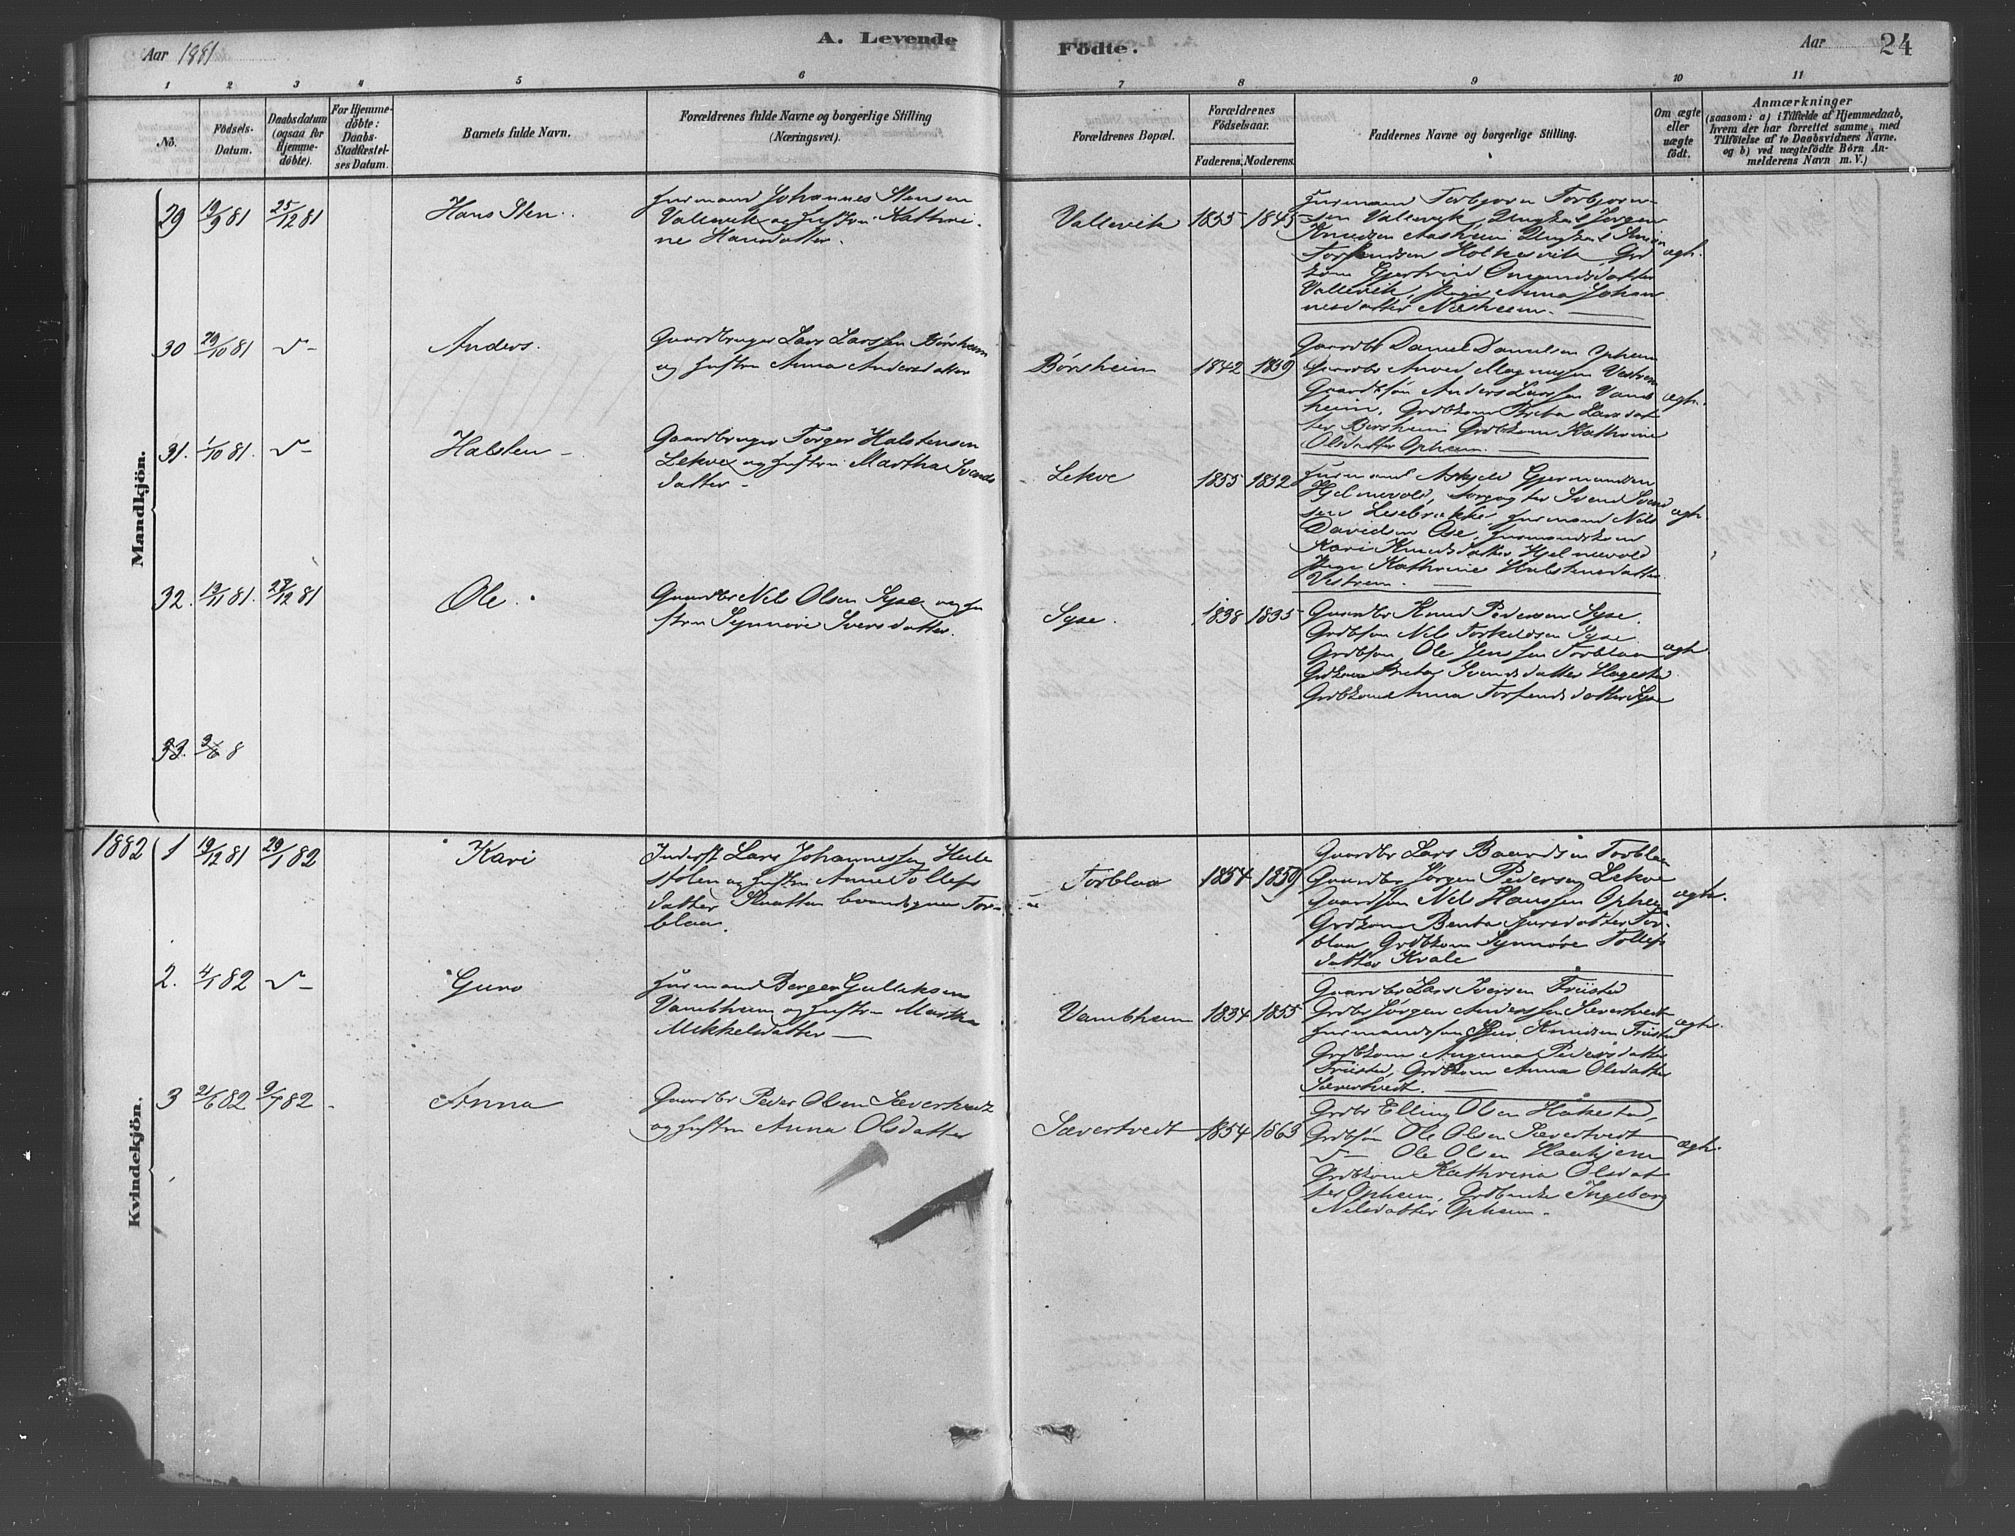 Aar 1881
A. Levende
Födte.
Aar
24
1 2 3 4 5 6 7 8 9 10 11
No.
Födsels-
Datum.
Daabsdatum
(ogsaa for
Hjemme-
döbte).
For Hjemme-
döbte:
Daabs-
Stadfæstel-
ses Datum.
Barnets fulde Navn.
Forældrenes fulde Navne og borgerlige Stilling
(Næringsvei).
Forældrenes Bopæl.
Forældrenes
Födselsaar.
Faderens. Moderens.
Faddernes Navne og borgerlige Stilling.
Om ægte
eller
uægte
födt.
Anmærkninger
(saasom: a) i Tilfælde af Hjemmedaab,
hvem der har forrettet samme, med
Tilföielse af to Daabsvidners Navne.
og b) ved uægtefödte Börn An-
melderens Navn m. V.)
Mandkjön.
29 19/9 81 25/12 81
Hans Sten.
Furmand Johannes Stensen
Vallevik og Hustru Kathri-
ne Hansdatter.
Vallevik 1855 1845
Furmand Torbjørn Torbjørn-
sen Vallevik, Ungkarl Jørgen
Knudsen Aasheim Ungkarl
Torfindsen Holkesvik Grd
kone Gjertrud Omundsdatter
Vallevik, Pige Anna Johan
nesdatter Næsheim.
ægte.
30 29/10 81 v-
Anders.
Gaardbruger Lars Larssen Børsheim
og Hustru Anna Andersdatter
Børsheim 1842 1839
Gaardbr Daniel Danielsen Opheim
Gaardbr Magnussen Vestrem
Gaardbsøn Anders Larssen Vamb
heim. Grdbkone Brita Larsdat
ter Børsheim Grdbkone Kathrine
Olsdatter Opheim.
ægte.
31. 1/10 81. v-
Halsten
Gaardbruger Torger Halstensen
Lekve og Hustru Martha Svends
datter
Lekve 1855 1852
Furmand Askjeld Gjermundsen
Hjelmevold, Svend Svend
sen Lesebrække, Furmand Nils
Davidsen Ose, Furmandskone
Kari Knudsdatter Hjelmevold
Pige Kathrine Halstensdatter
Vestrem.
ægte
32. 13/11 81. 27/12 81
Ole.
Gaardbr Nils Olsen Syse og Hu
stru Synnøve Siversdatter.
Syse. 1838 1835
Gaardbr Knud Pedersen Syse.
Grdbsøn Nils Torkeldsen Syse
Grdbsøn Ole Jenssen Torblaa
Grdkone Brita Svendsdatter Hagestad
Grdbkone Anna Torfindsdatter Syse
ægte
33. 8
1882
Kvindekjön.
1 19/12 81 29/1 82
Kari
Inderst Lars Johannessen Helle
stolen og Hustru Anne Tollefs
datter Skaatten boendegaard Tor-
blaa.
Torblaa 1854 1859
Gaardbr Lars Baardsen Torblaa
Gaardbr Jørgen Pedersen Lekve
Gaardsøn Nils Hanssen Opheim
Grdkone Benta Sjursdatter Tor-
blaa, Grdbkone Synnøve Tollefs
datter Kvale
ægte.
2. 4/1 82 v-
Guro
Furmand Berger Gulleksen
Vambheim og Hustru Martha
Mikkelsdatter
Vambheim 1834 1855
Gaardbr Lars Iversen Tristø
Grdbr Jørgen Anderssen Sævertvedt
Furmandssøn Knudsen Tristø
Grdbkone Pedersdatter
Tristø, Grdbkone Anna Olsdatter
Sævertvedt.
ægte.
3 21/6 82 9/7 82
Anna
Gaardbr Peder Olsen Sævertvedt
og Hustru Anna Olsdatter
Sævertvedt 1854 1863
Grdbr Elling Olsen Håkestad,
Grdbsøn Ole Olsen Sævertvedt
v- Ole Olsen Haaheim
Grdbkone Kathrina Olsdat
ter Opheim, Grdbenke Ingeborg
Nilsdatter Opheim.
ægte.